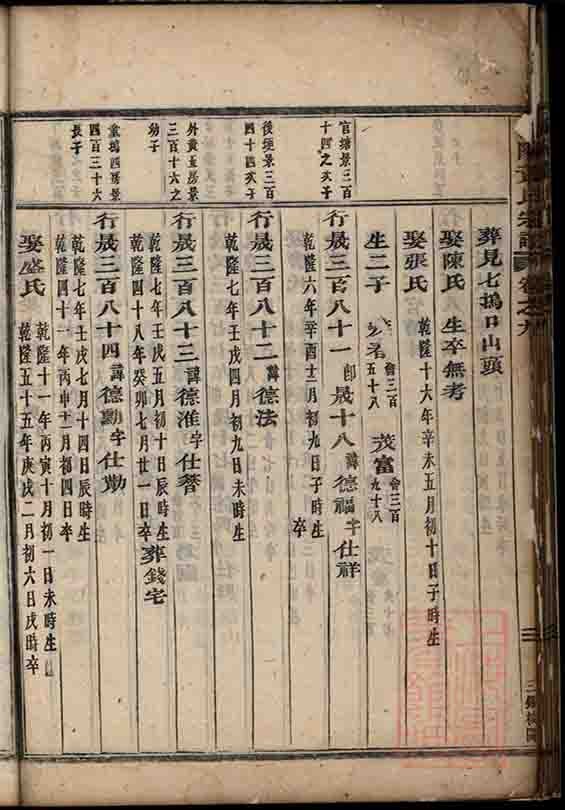 葬見七塢口山頭
娶陳氏 生卒無考
娶張氏 乾隆十六年辛未五月初十日子時生
生二子 會三百五十八 茂富 會三百九十八
官塘景三百
十四之次子
行晟三百八十一 郎晟十八 諱德福字仕祥
乾隆六年辛酉十二月初九日子時生
卒
後埂景三百
四十四次子
行晟三百八十二 諱德法
乾隆七年壬戌四月初九日未時生
外黃五房景
三百十六之
幼子
行晟三百八十三 諱德淮字仕
乾隆七年壬戌五月初十日辰時生
乾隆四十八年癸卯七月廿一日卒 葬錢宅
塢四房景
四百三十六
長子
行晟三百八十四 諱德勳字仕勤
乾隆七年壬戌七月十四日辰時生
乾隆四十一年丙申十二月初四日卒
娶盛氏 乾隆十一年丙寅十月初一日未時生
乾隆五十五年庚戌二月初六日戌時卒
氏宗譜 卷之九
三